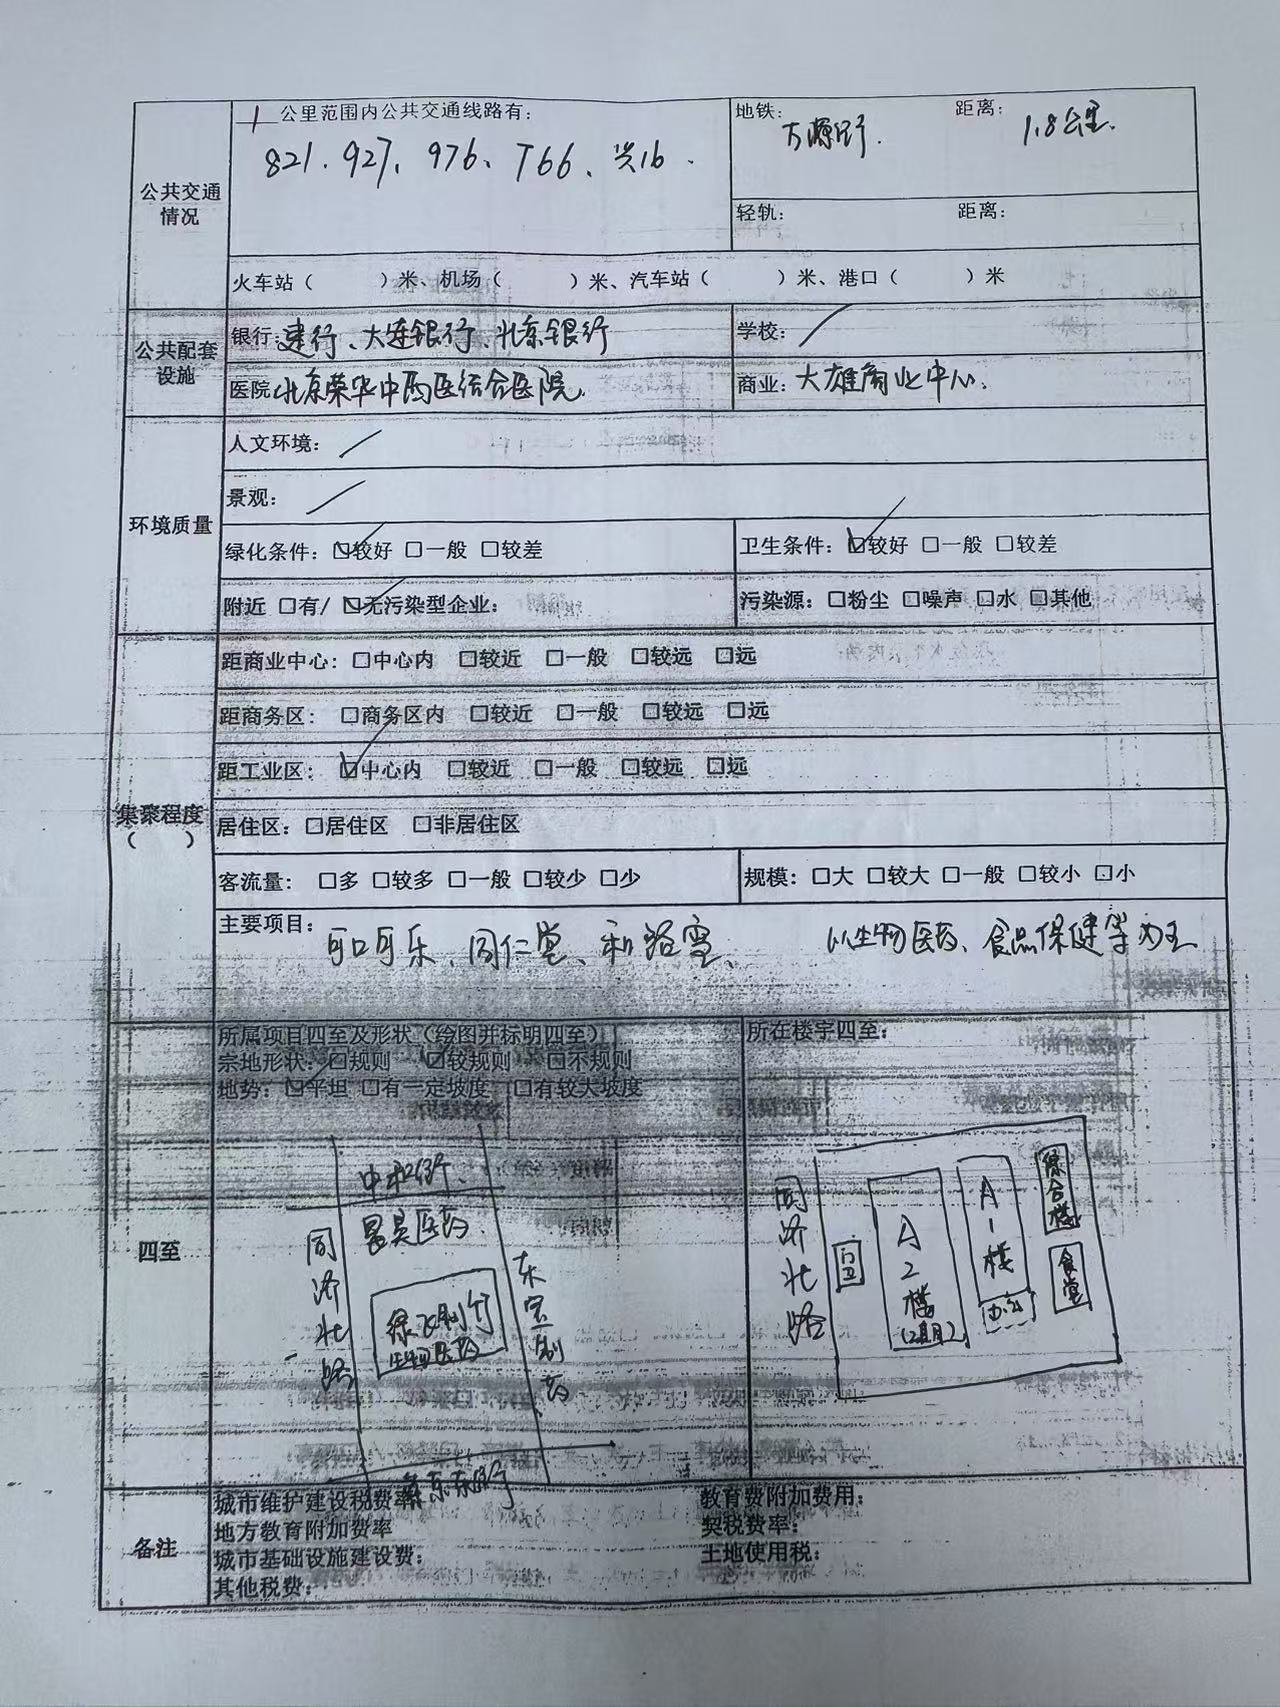 公共交通情况
1 公里范围内公共交通线路有：
821、927、976、766、共16、
地铁： 万源街 距离： 1.8公里
轻轨： 距离：
火车站（ ）米、机场（ ）米、汽车站（ ）米、港口（ ）米
公共配套设施
银行：建行、大连银行、北京银行
学校：/
医院 北京荣华中西医结合医院
商业：大雄商业中心
环境质量
人文环境：/
景观：/
绿化条件：☑较好 □一般 □较差
卫生条件：☑较好 □一般 □较差
附近 □有/ ☑无污染型企业：
污染源：□粉尘 □噪声 □水 □其他
集聚程度
（ ）
距商业中心：□中心内 □较近 □一般 □较远 □远
距商务区： □商务区内 □较近 □一般 □较远 □远
距工业区： ☑中心内 □较近 □一般 □较远 □远
居住区：□居住区 □非居住区
客流量： □多 □较多 □一般 □较少 □少
规模：□大 □较大 □一般 □较小 □小
主要项目： 可口可乐、同仁堂、和路雪、 以生物医药、食品保健等为主
四至
所属项目四至及形状（绘图并标明四至）
宗地形状：□规则 ☑较规则 □不规则
地势：☑平坦 □有一定坡度 □有较大坡度
中和街
昊医药
同济北路
生物医药
东宝制药
所在楼宇四至：
同济北路
门卫
A2楼
A1楼
办公
综合楼
食堂
备注
城市维护建设税费率
教育费附加费用：
地方教育附加费率
契税费率：
城市基础设施建设费：
土地使用税：
其他税费：